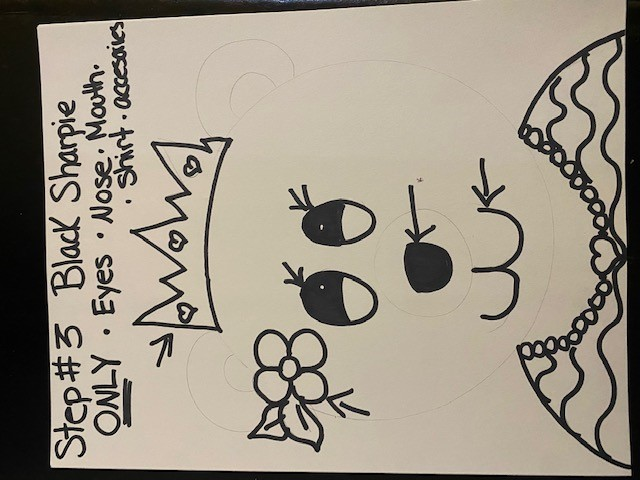 Step #3 Black Sharpie
ONLY · Eyes · Nose · Mouth.
· Shirt · accesories